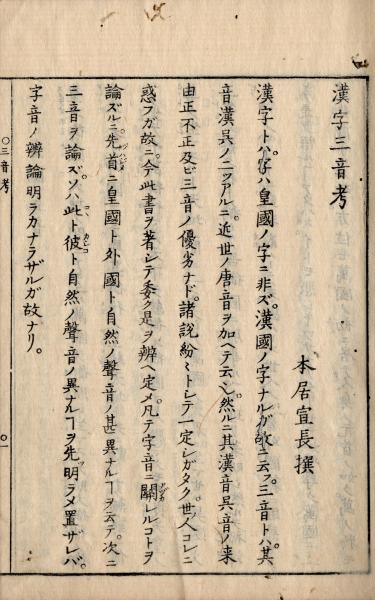 漢字三音考
本居宣長撰
漢字トハ字ハ皇國ノ字ニ非ズ。漢國ノ字ナルガ故ニ云フ。三音トハ其
音漢呉ノ二ツアルニ。近世ノ唐音ヲ加ヘテ云ヘリ。然ルニ其漢音呉音ノ来
由正不正及ビ三音ノ優劣ナド。諸説紛々トシテ一定シガタク。世人コレニ
惑フガ故ニ。今此書ヲ著シテ委ク是ヲ辨ヘ定メ。凡テ字音ニ關レルコトヲ
論ズルニ。先首ニ皇國ト外國ト自然ノ聲音ノ甚異ナルヿヲ云テ。次ニ
三音ヲ論ズ。ソハ此ト彼ト自然ノ聲音ノ異ナルヿヲ先明ラメ置ザレバ。
字音ノ辨論明ラカナラザルガ故ナリ。
○三音考
○一